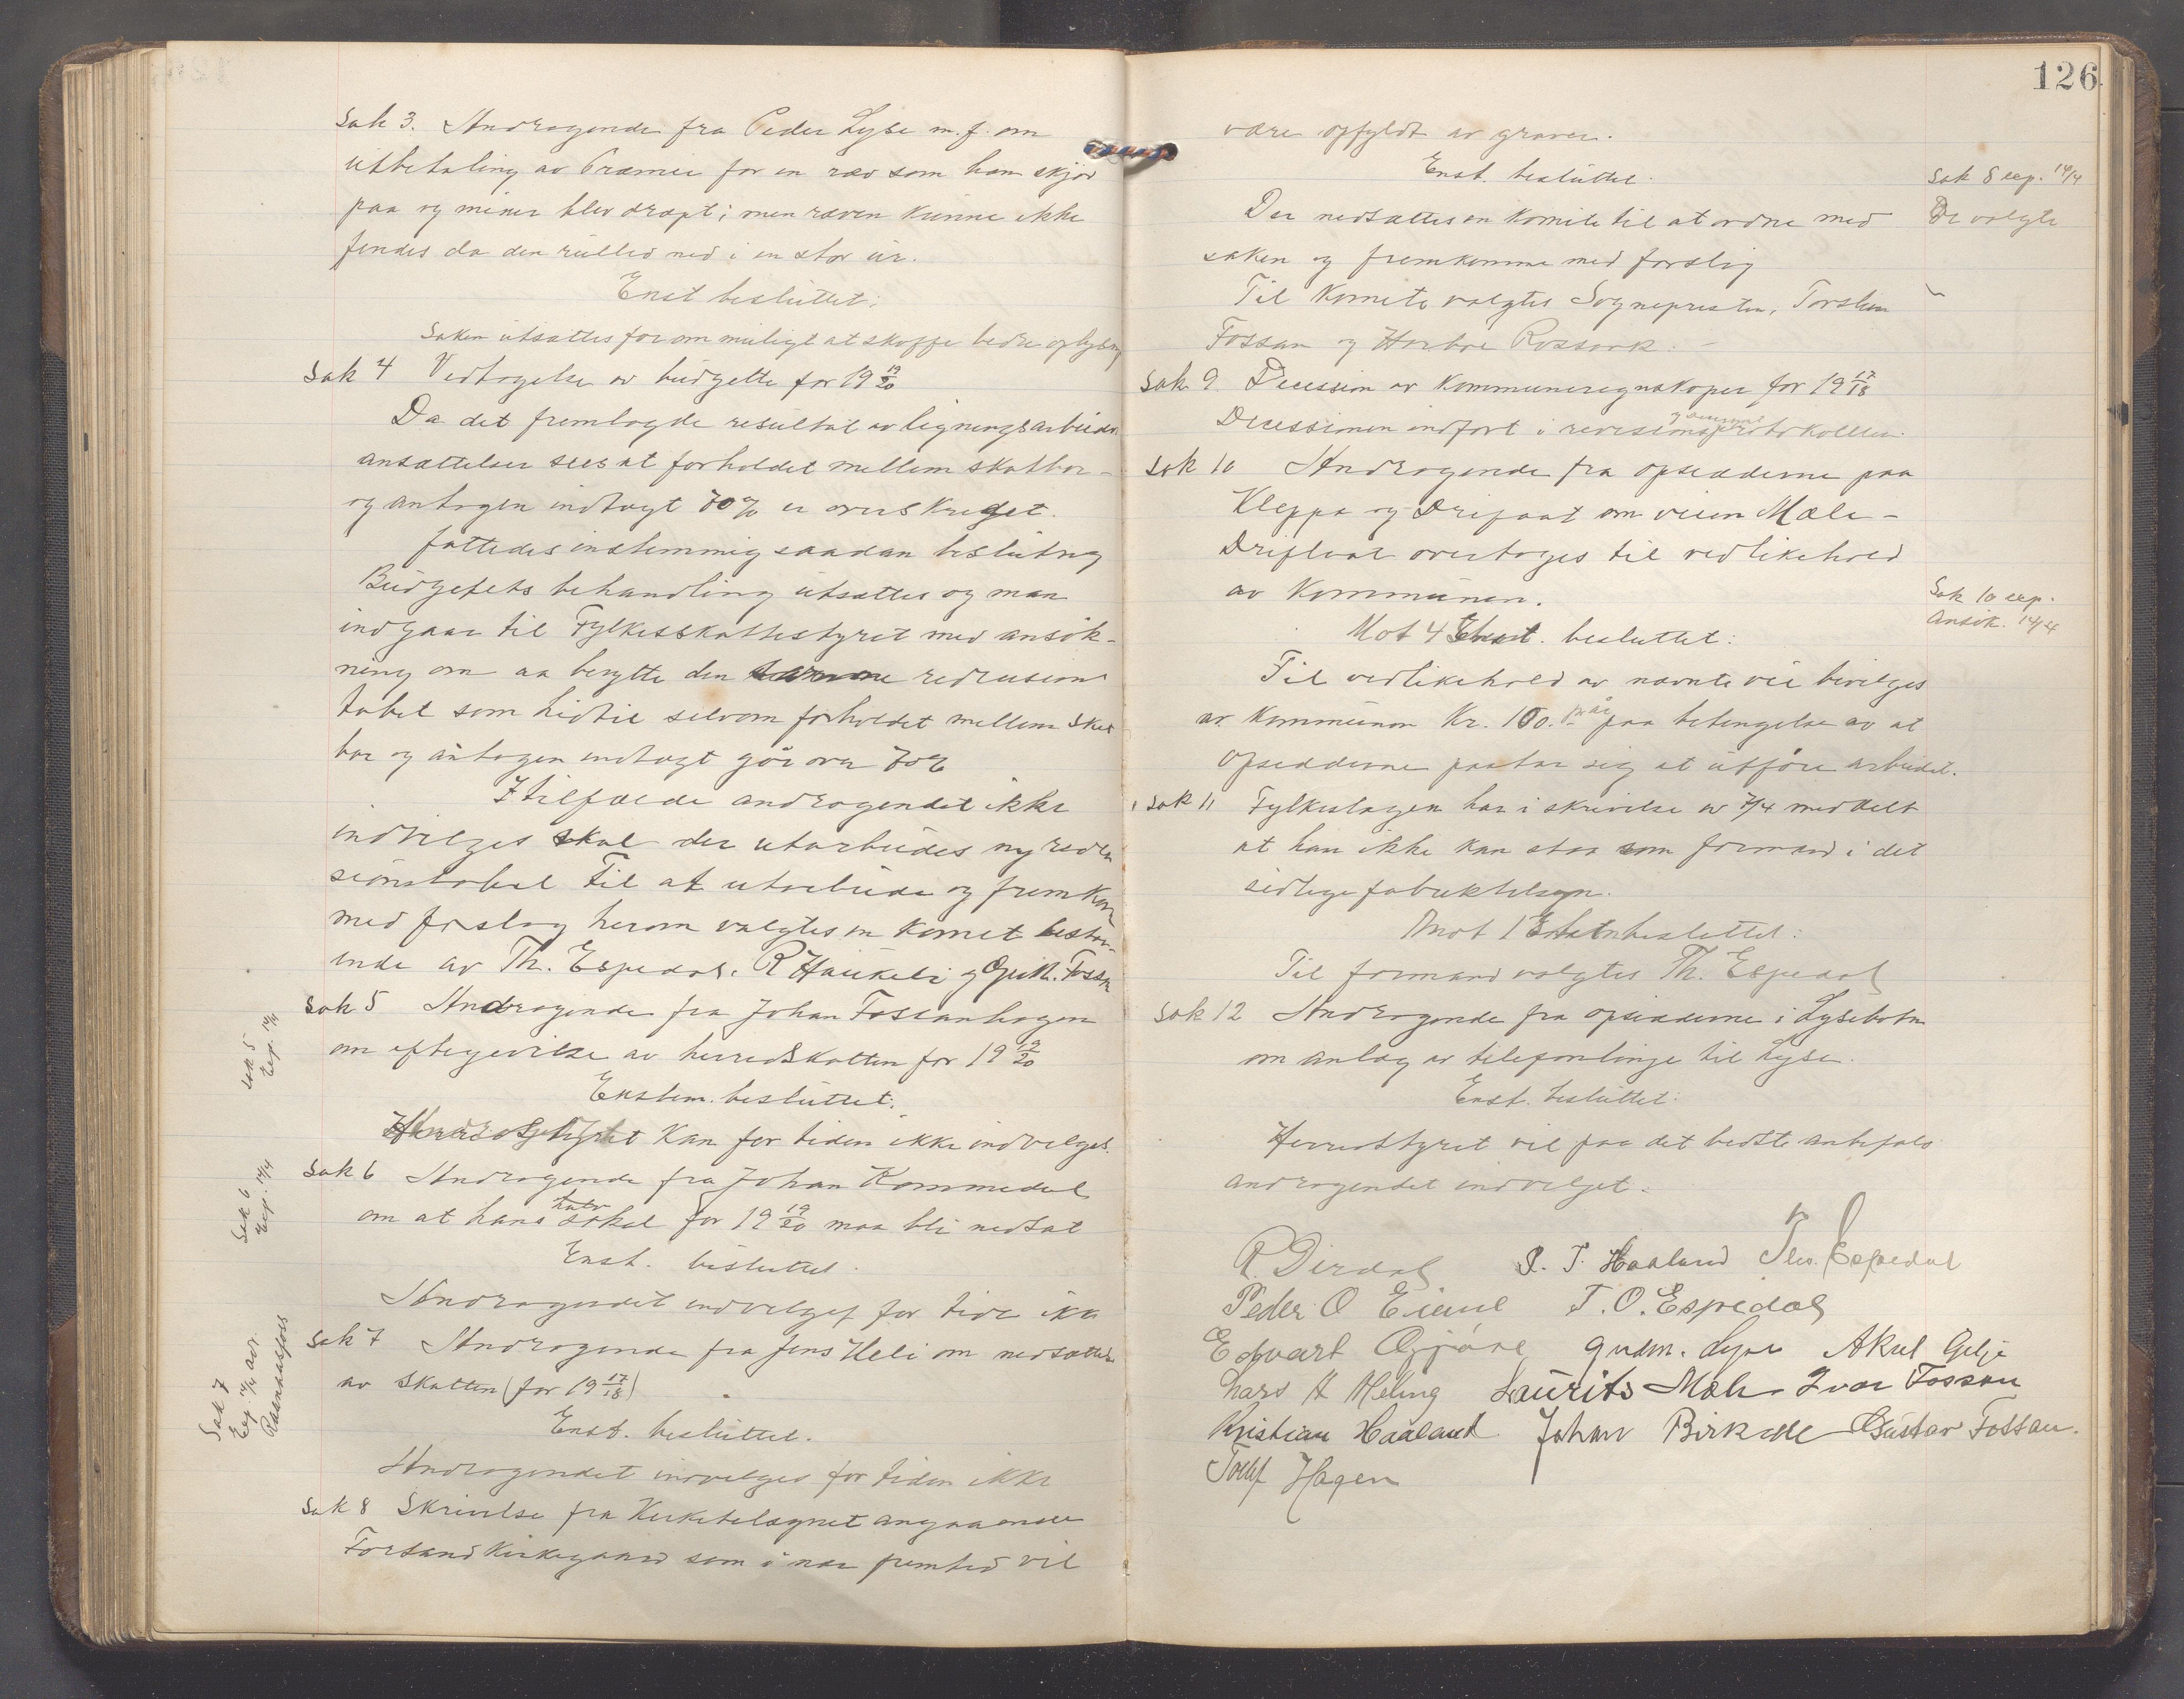 Sak 3. Andragende fra Peder Lyse m.f. om
utbetaling av Præmie for en ræv som han skjöd
paa og mener blev dræpt; men ræven kunne ikke
findes da den rulled ned i en stor ur.
Enst besluttet:
Saken utsættes for om muligt at skaffe bedre oplysning
Sak 4 Vedtagelse av budgette for 19 19/20
Da det fremlagde resultat av ligningsarbeidet
ansættelser sees at forholdet mellem skatbar-
og antagen indtægt 70% er overskreget.
fattedes enstemmig saadan beslutning
Budgetets behandling utsættes og man
indgaar til Fylkesskattestyret med ansök-
ning om aa benytte den samme reduksions
tabel som hidtil selvom forholdet mellem skat
bar og antagen indtægt gör over 70%
I tilfælde andragendet ikke
indvilges skal der utarbeides ny reduk
sionstabel Til at utarbeide og fremkom
med forslag herom valgtes en komite bestaa-
ende av Th. Espedal. R Haukeli og Gudm. Fossan
Sak 5 Andragende fra Johan Fossanhagen
om eftergivelse av herredskatten for 19 19/20
Enstem. besluttet:
Kan for tiden ikke indvilges.
Sak 6 Andragende fra Johan Kommedal
om at hans halv skat for 19 19/20 maa bli nedsat
Enst. besluttet.
Andragendet indvilges for tide ikke
Sak 7 Andragende fra Jens Heli om nedsættelse
av skatten (for 19 17/18)
Enst. besluttet.
Andragendet indvilges for tiden ikke
Sak 8 Skrivelse fra Kirketilsynet angaaende
Forsand Kirkegaard som i nær fremtid vil
Sak 5
Exp. 14/4
Sak 6
Exp. 14/4
Sak 7
Exp. 14/4 adr.
126
være opfyldt av graver.
Enst. besluttet.
Der nedsættes en komite til at ordne med
saken og fremkomme med forslag
Til Komite valgtes Sognepresten, Torsten
Fossan og Rossavik.
Sak 8 exp. 14/4
De valgte
Sak 9. Decission av Kommuneregnskaper for 19 17/18
Decissionen indfört i revisionsprotokollen.
Sak 10 Andragende fra opsidderne paa
Kleppa og om veien Mæle-
overtages til vedlikehold
av Kommunen.
Sak 10 exp.
Ansök. 14/4
Mot 4 besluttet:
Til vedlikehold av nævnte vei bevilges
av Kommunen Kr. 100.- pr år paa betingelse av at
Opsidderne paatar sig at utföre arbeidet.
Sak 11 Fylkeslægen har i skrivelse av 7/4 meddelt
at han ikke kan staa som formand i det
stedlige fabriktilsyn.
Imot 1 besluttet:
Til formand valgtes Th. Espedal
Sak 12 Andragende fra opsidderne i Lysebotn
om anlæg av telefonlinje til Lyse.
Enst. besluttet:
Herredstyret vil paa det bedste anbefale
andragendet indvilget.
R. Dirdal S. T. Haaland Thv. Espedal
Peder O Eiane T. O. Espedal
Edvart Gjöse Gudm. Lyse Aksel Gilje
Lars H Meling Laurits Mæle Ivar Fossan
Kristian Haaland Johan Birkedal Gustav Fossan.
Tollef Hagen